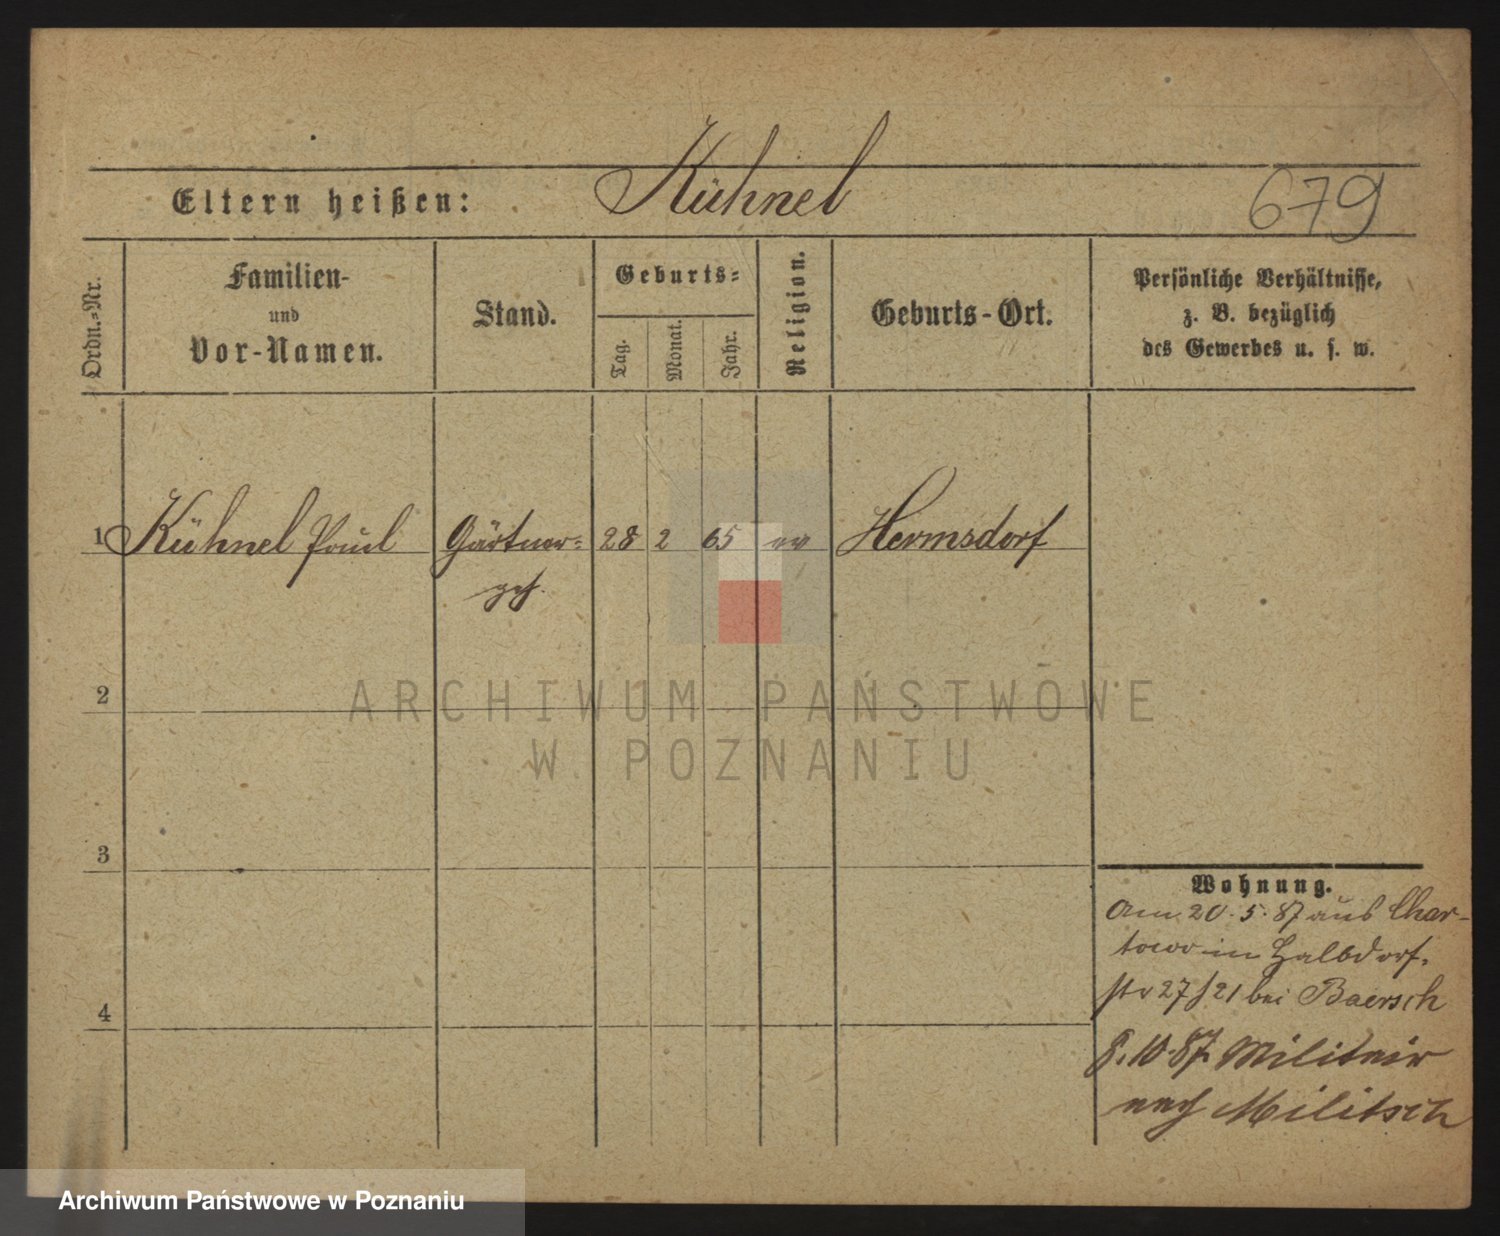 Kühnel
Eltern heißen:
679
Ordn.-Nr.
Familien-
und
Vor-Namen.
Stand.
Geburts-
Tag.
Monat.
Jahr.
Religion.
Geburts-Ort.
Persönliche Verhältnisse,
z. B. bezüglich
des Gewerbes u. s. w.
1 Kühnel Paul Gärtner- 28 2 65 ev Hermsdorf
geh.
2
3
4
ARCHIWUM PAŃSTWOWE
W POZNANIU
Wohnung.
Am 20.5.87 aus Char-
towo in Halbdorf-
str 27 f 21 bei Baersch
8.10.87 Militair
nach Militsch
Archiwum Państwowe w Poznaniu